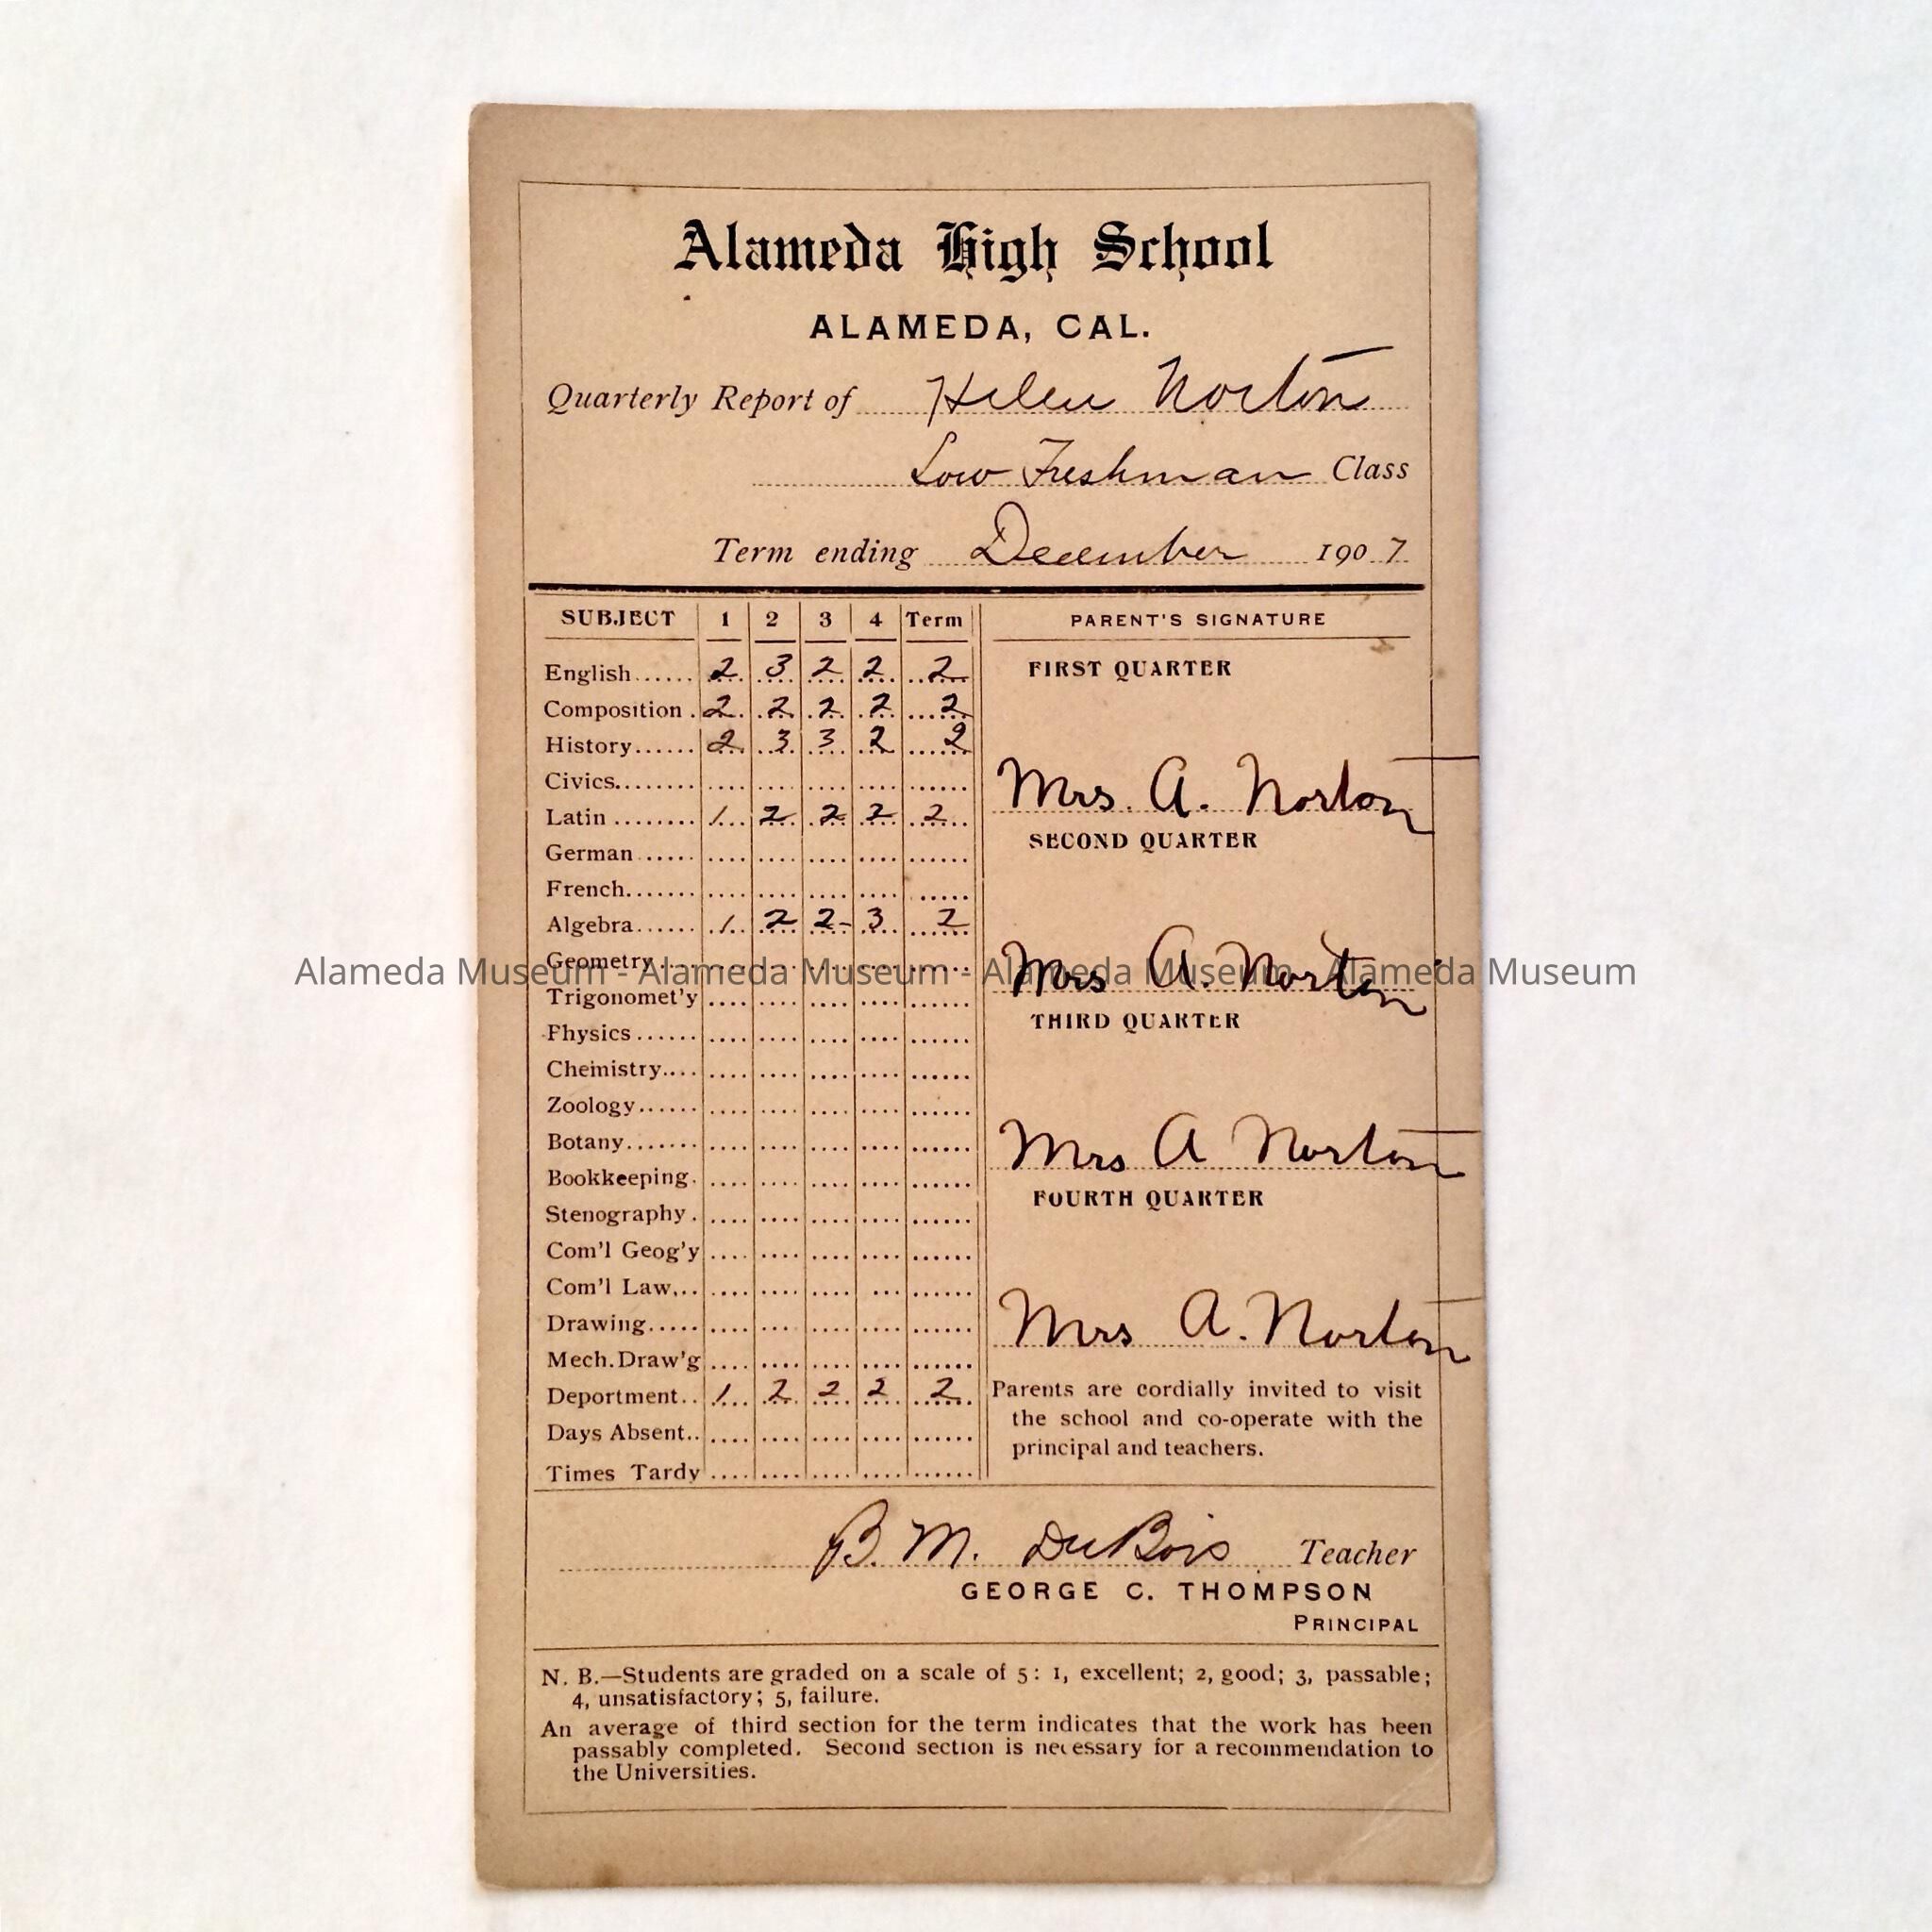 Alameda High School
ALAMEDA, CAL.
Quarterly Report of Helen Norton
Low Freshman Class
Term ending December 1907
SUBJECT 1 2 3 4 Term PARENT'S SIGNATURE
English...... 2 3 2 2 2
FIRST QUARTER
Composition . 2 2 2 2 2
History...... 2 3 3 2 2
Civics........
Mrs. A. Norton
Latin ........ 1 2 2 2 2
SECOND QUARTER
German ......
French.......
Algebra...... 1 2 2- 3 2
Mrs A. Norton
Geometry ...
Alameda Museum - Alameda Museum - Alameda Museum - Alameda Museum
Trigonomet'y
THIRD QUARTER
Physics ......
Chemistry....
Zoology......
Botany.......
Mrs A Norton
Bookkeeping.
FOURTH QUARTER
Stenography .
Com'l Geog'y
Com'l Law...
Drawing.....
Mrs A. Norton
Mech.Draw'g
Deportment.. 1 2 2 2 2
Parents are cordially invited to visit
the school and co-operate with the
principal and teachers.
Days Absent..
Times Tardy
B. M. DuBois Teacher
GEORGE C. THOMPSON
PRINCIPAL
N. B.—Students are graded on a scale of 5: 1, excellent; 2, good; 3, passable;
4, unsatisfactory; 5, failure.
An average of third section for the term indicates that the work has been
passably completed. Second section is necessary for a recommendation to
the Universities.